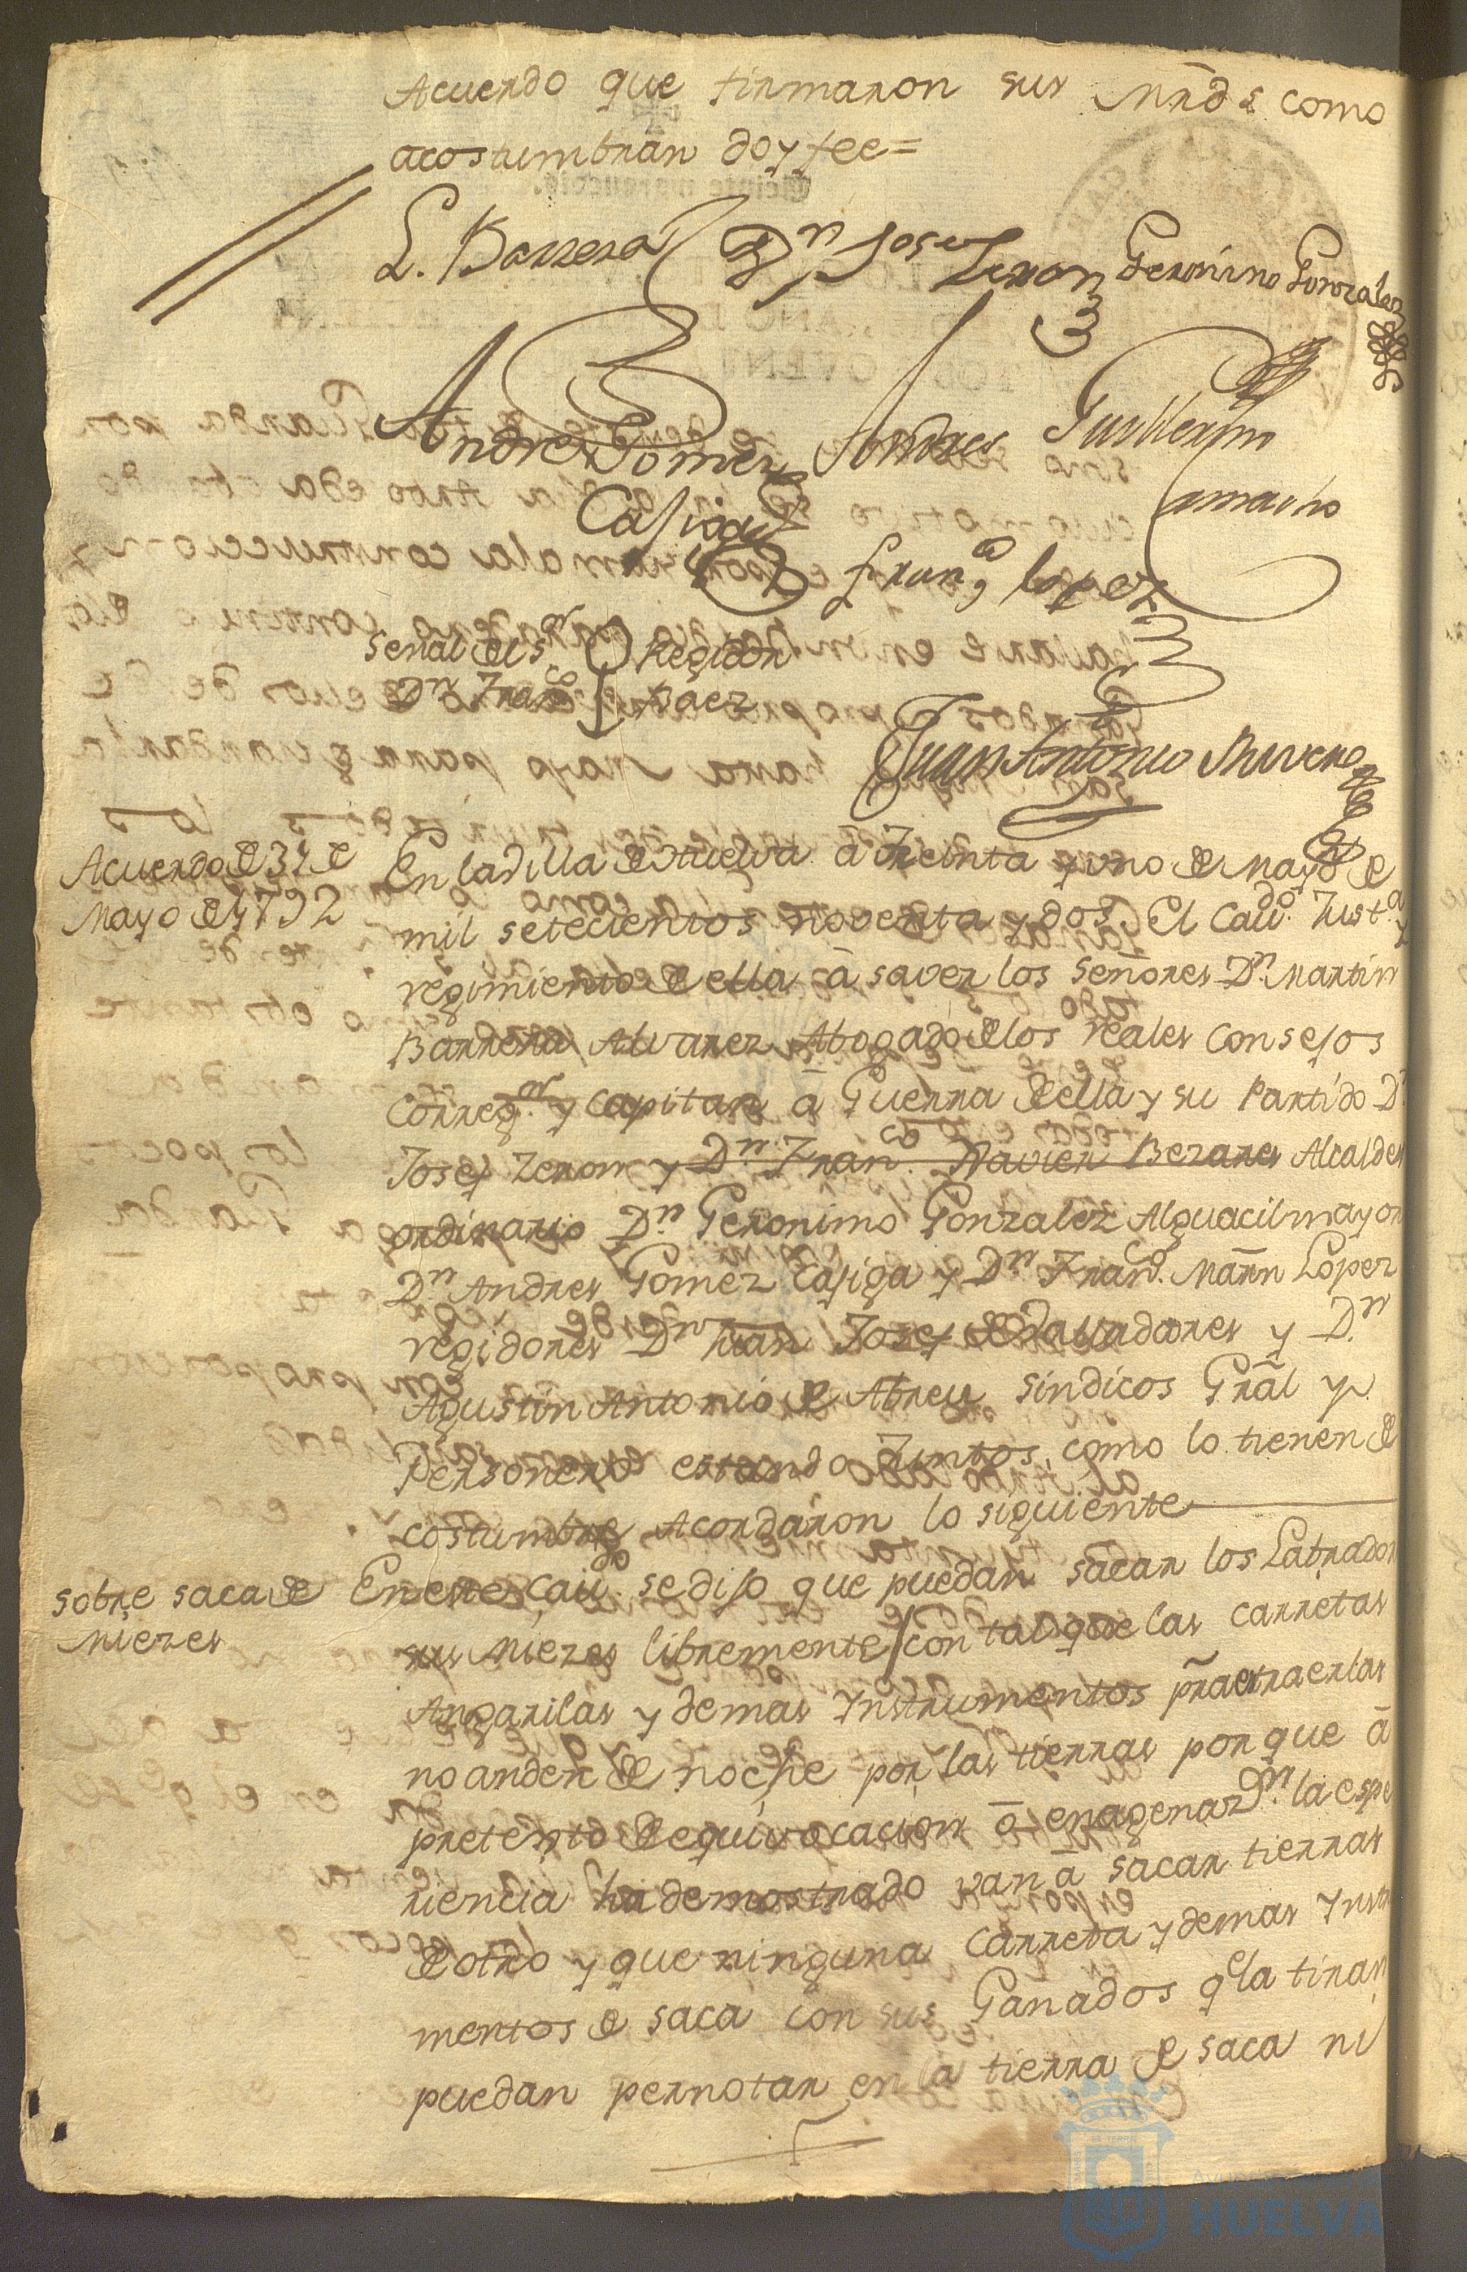 Acuerdo que firmaron sus Mrds como
acostumbran doy fee=
L. Barrera Dn Josef Zeron Geronimo Gonzales
Andres Gomez Andres Guillermo
Casiga Camacho
Franco Lopez
Señal del Sor Regidor
Dn Franco Baez
Juan Antonio Riverno
Acuerdo de 31 de
Mayo de 1792
En la Villa de Huelva â Treinta y uno de Mayo de
mil setecientos noventa y dos. El Caudo. Justa y
regimiento de ella â saver los Señores Dn. Martin
Barrera Alvarez Abogado de los reales consejos
Correxor. y Capitan â Guerra de ella y su Partido Dn
Josef Zeron y Dn. Franco. Xavier Bezares Alcaldes
ordinario Dn Geronimo Gonzalez Alguacil mayor
Dn Andres Gomez Casiga y Dn Franco. Mārn Lopez
regidores Dn Juan Josef de y Dn
Agustin Antonio de Abreu sindicos Grāl y
Personero estando Juntos como lo tienen de
costumbre Acordaron lo siguiente
sobre saca de
Miezes
En este Caudo. se dijo que puedan sacar los Labrador
sus Miezes libremente con tal que las carretas
Angarilas y demas Ynstrumentos pra extraerlas
no anden de noche por las tierras porque â
pretexto de equivocacion ô enagenazn. la espe
riencia ha demostrado van â sacar tierras
de otro y que ninguna Carreta y demas Ynstru
mentos de saca con sus Ganados qe la tiran
puedan pernotar en la tierra de saca ni
HUELVA